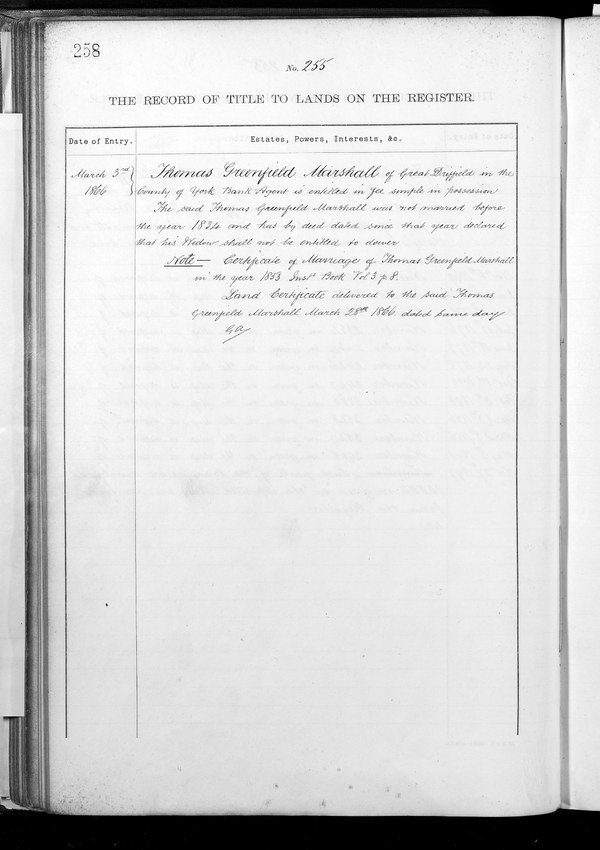 258
No. 255
THE RECORD OF TITLE TO LANDS ON THE REGISTER.
Date of Entry.
Estates, Powers, Interests, &c.
March 3rd
1866
Thomas Greenfield Marshall of Great Driffield in the
County of York Bank Agent is entitled in fee simple in possession
The said Thomas Greenfield Marshall was not married before
the year 1834 and has by deed dated since that year declared
that his Widow shall not be entitled to dower
Note — Certificate of Marriage of Thomas Greenfield Marshall
in the year 1853 Insts Book Vol 3 p 8.
Land Certificate delivered to the said Thomas
Greenfield Marshall March 28th 1866 dated same day